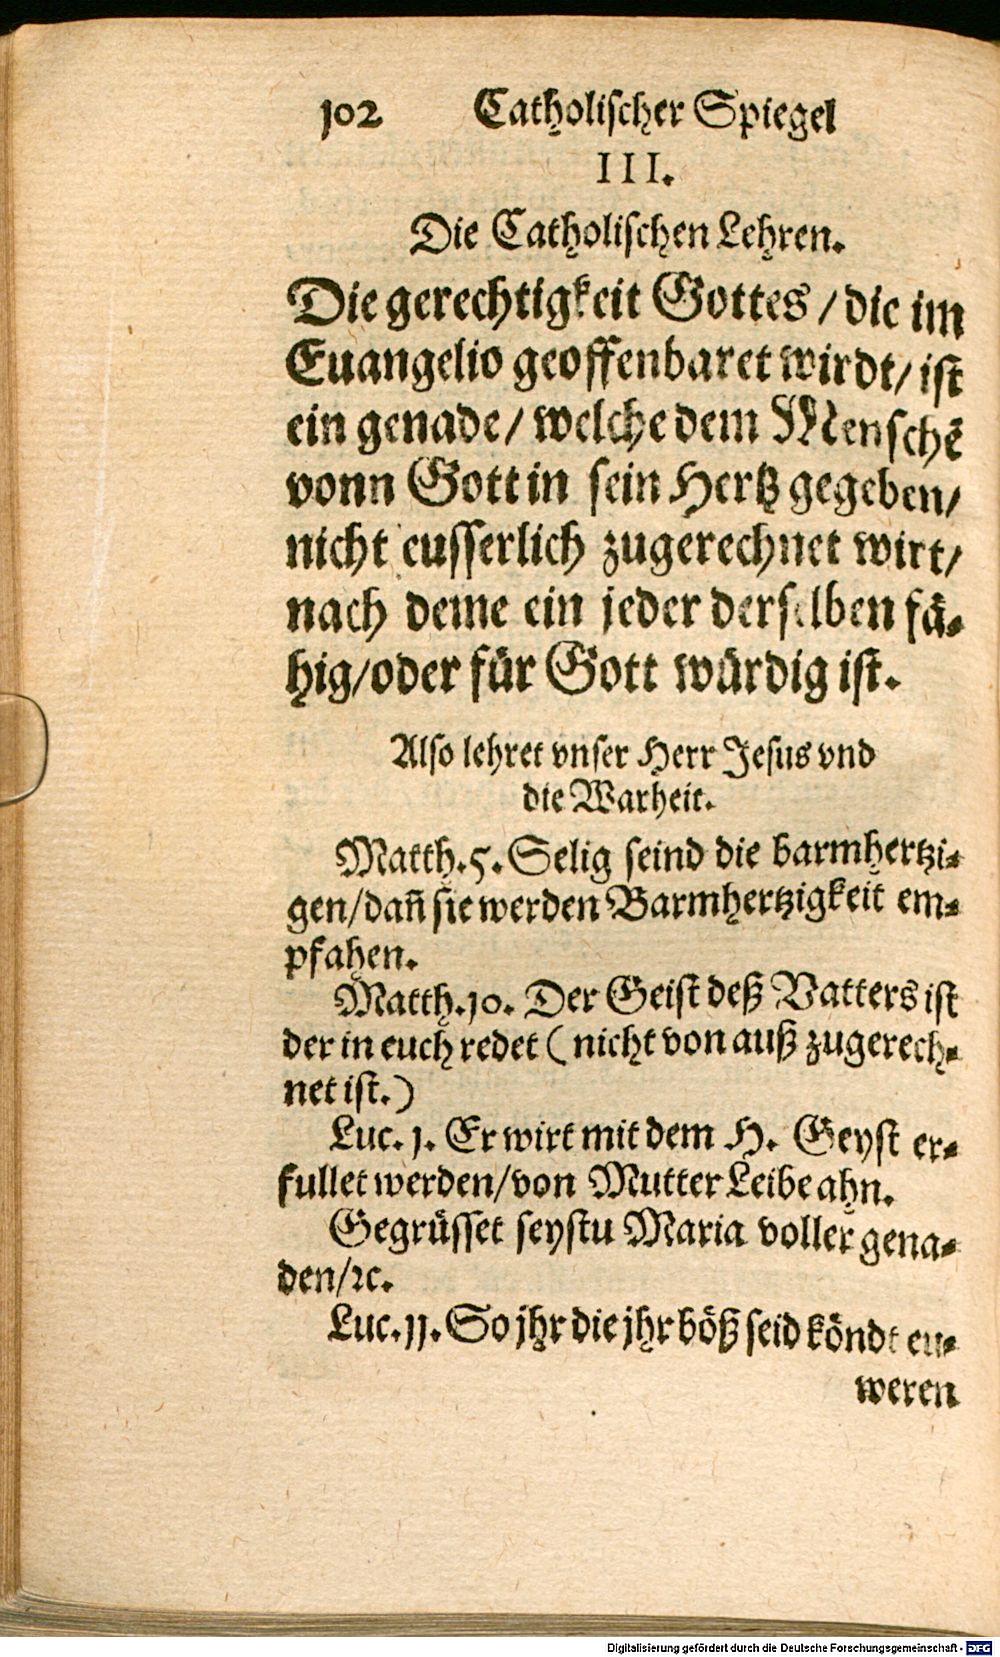 102 Catholischer Spiegel
III.
Die Catholischen Lehren.
Die gerechtigkeit Gottes / die im
Euangelio geoffenbaret wirdt / ist
ein genade / welche dem Menschẽ
vonn Gott in sein Hertz gegeben /
nicht eusserlich zugerechnet wirt /
nach deme ein jeder derselben fä-
hig / oder für Gott würdig ist.
Also lehret vnser Herr Jesus vnd
die Warheit.
Matth. 5. Selig seind die barmhertzi-
gen / dañ sie werden Barmhertzigkeit em-
pfahen.
Matth. 10. Der Geist deß Vatters ist
der in euch redet ( nicht von auß zugerech-
net ist. )
Luc. 1. Er wirt mit dem H. Geyst er-
fullet werden / von Mutter Leibe ahn.
Gegrüsset seystu Maria voller gena-
den / ꝛc.
Luc. 11. So jhr die jhr böß seid köndt eu-
weren
Digitalisierung gefördert durch die Deutsche Forschungsgemeinschaft - DFG